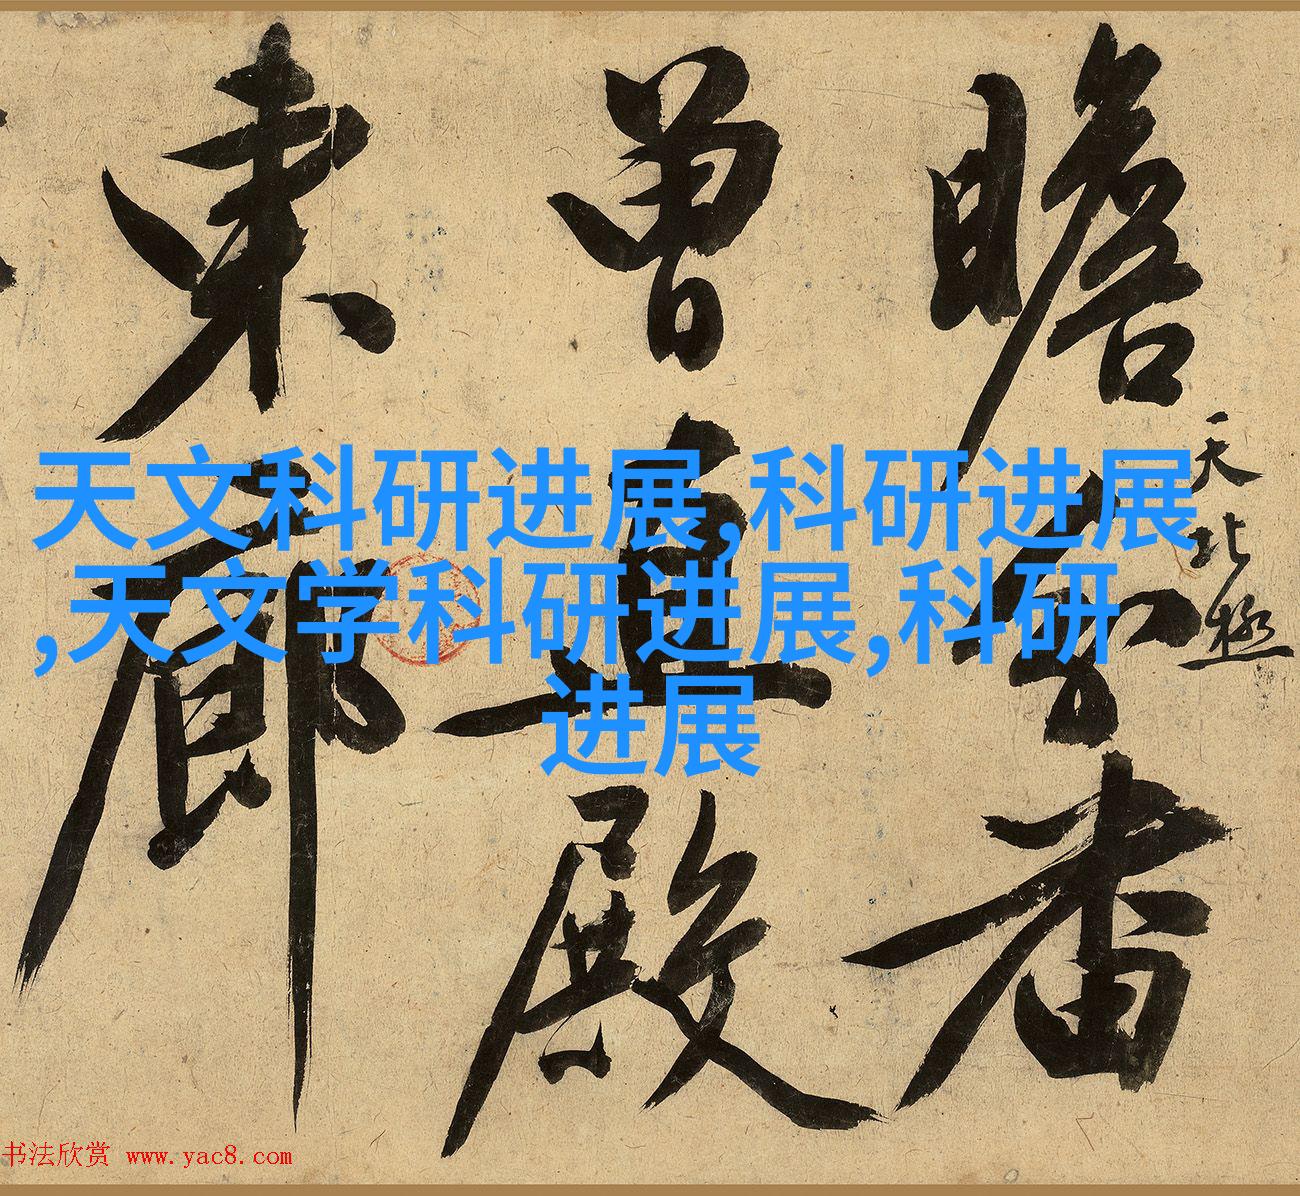 天文科研进展,科研进展
,天文学科研进展,科研
进展
瞻
天北極
曾直殿
東廊
书法欣赏 www.yac8.com